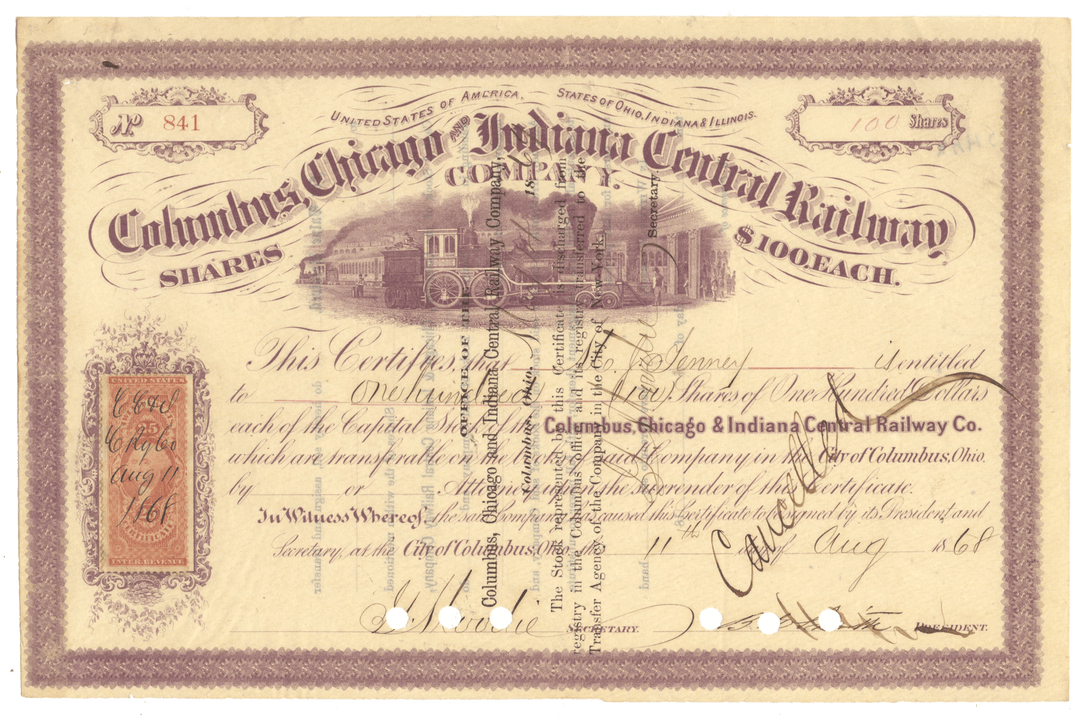 UNITED STATES OF AMERICA, STATES OF OHIO, INDIANA & ILLINOIS.
No. 841
100 Shares
Columbus, Chicago AND Indiana Central Railway
COMPANY.
SHARES $100, EACH.
This Certifies, that Tenney is entitled
to One hundred (100) Shares of One Hundred Dollars
each of the Capital Stock of the Columbus, Chicago & Indiana Central Railway Co.
which are transferable on the books of said Company in the City of Columbus, Ohio.
by or Attorney upon the surrender of this Certificate.
In Witness Whereof, the said Company has caused this Certificate to be signed by its President and
Secretary, at the City of Columbus, Ohio, this 11th day of Aug 1868
SECRETARY. PRESIDENT.
Cancelled
UNITED STATES
25
Aug 11
1868
CERTIFICATE
INTER. REVENUE
OFFICE OF THE
Columbus, Chicago and Indiana Central Railway Company,
Columbus, Ohio, 18
The Stock represented by this Certificate is discharged from
registry in the Columbus office, and its registry transferred to the
Transfer Agency of the Company in the City of New-York.
Secretary